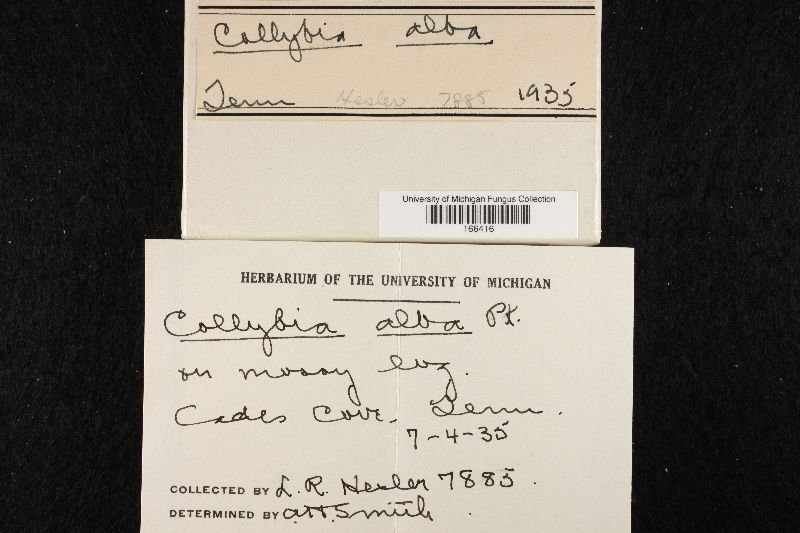 Collybia alba
Tenn Hesler 7885 1935
University of Michigan Fungus Collection
166416
HERBARIUM OF THE UNIVERSITY OF MICHIGAN
Collybia alba Pk.
on mossy log.
Cades Cove. Tenn.
7-4-35
COLLECTED BY L. R. Hesler 7885.
DETERMINED BY A.H. Smith.